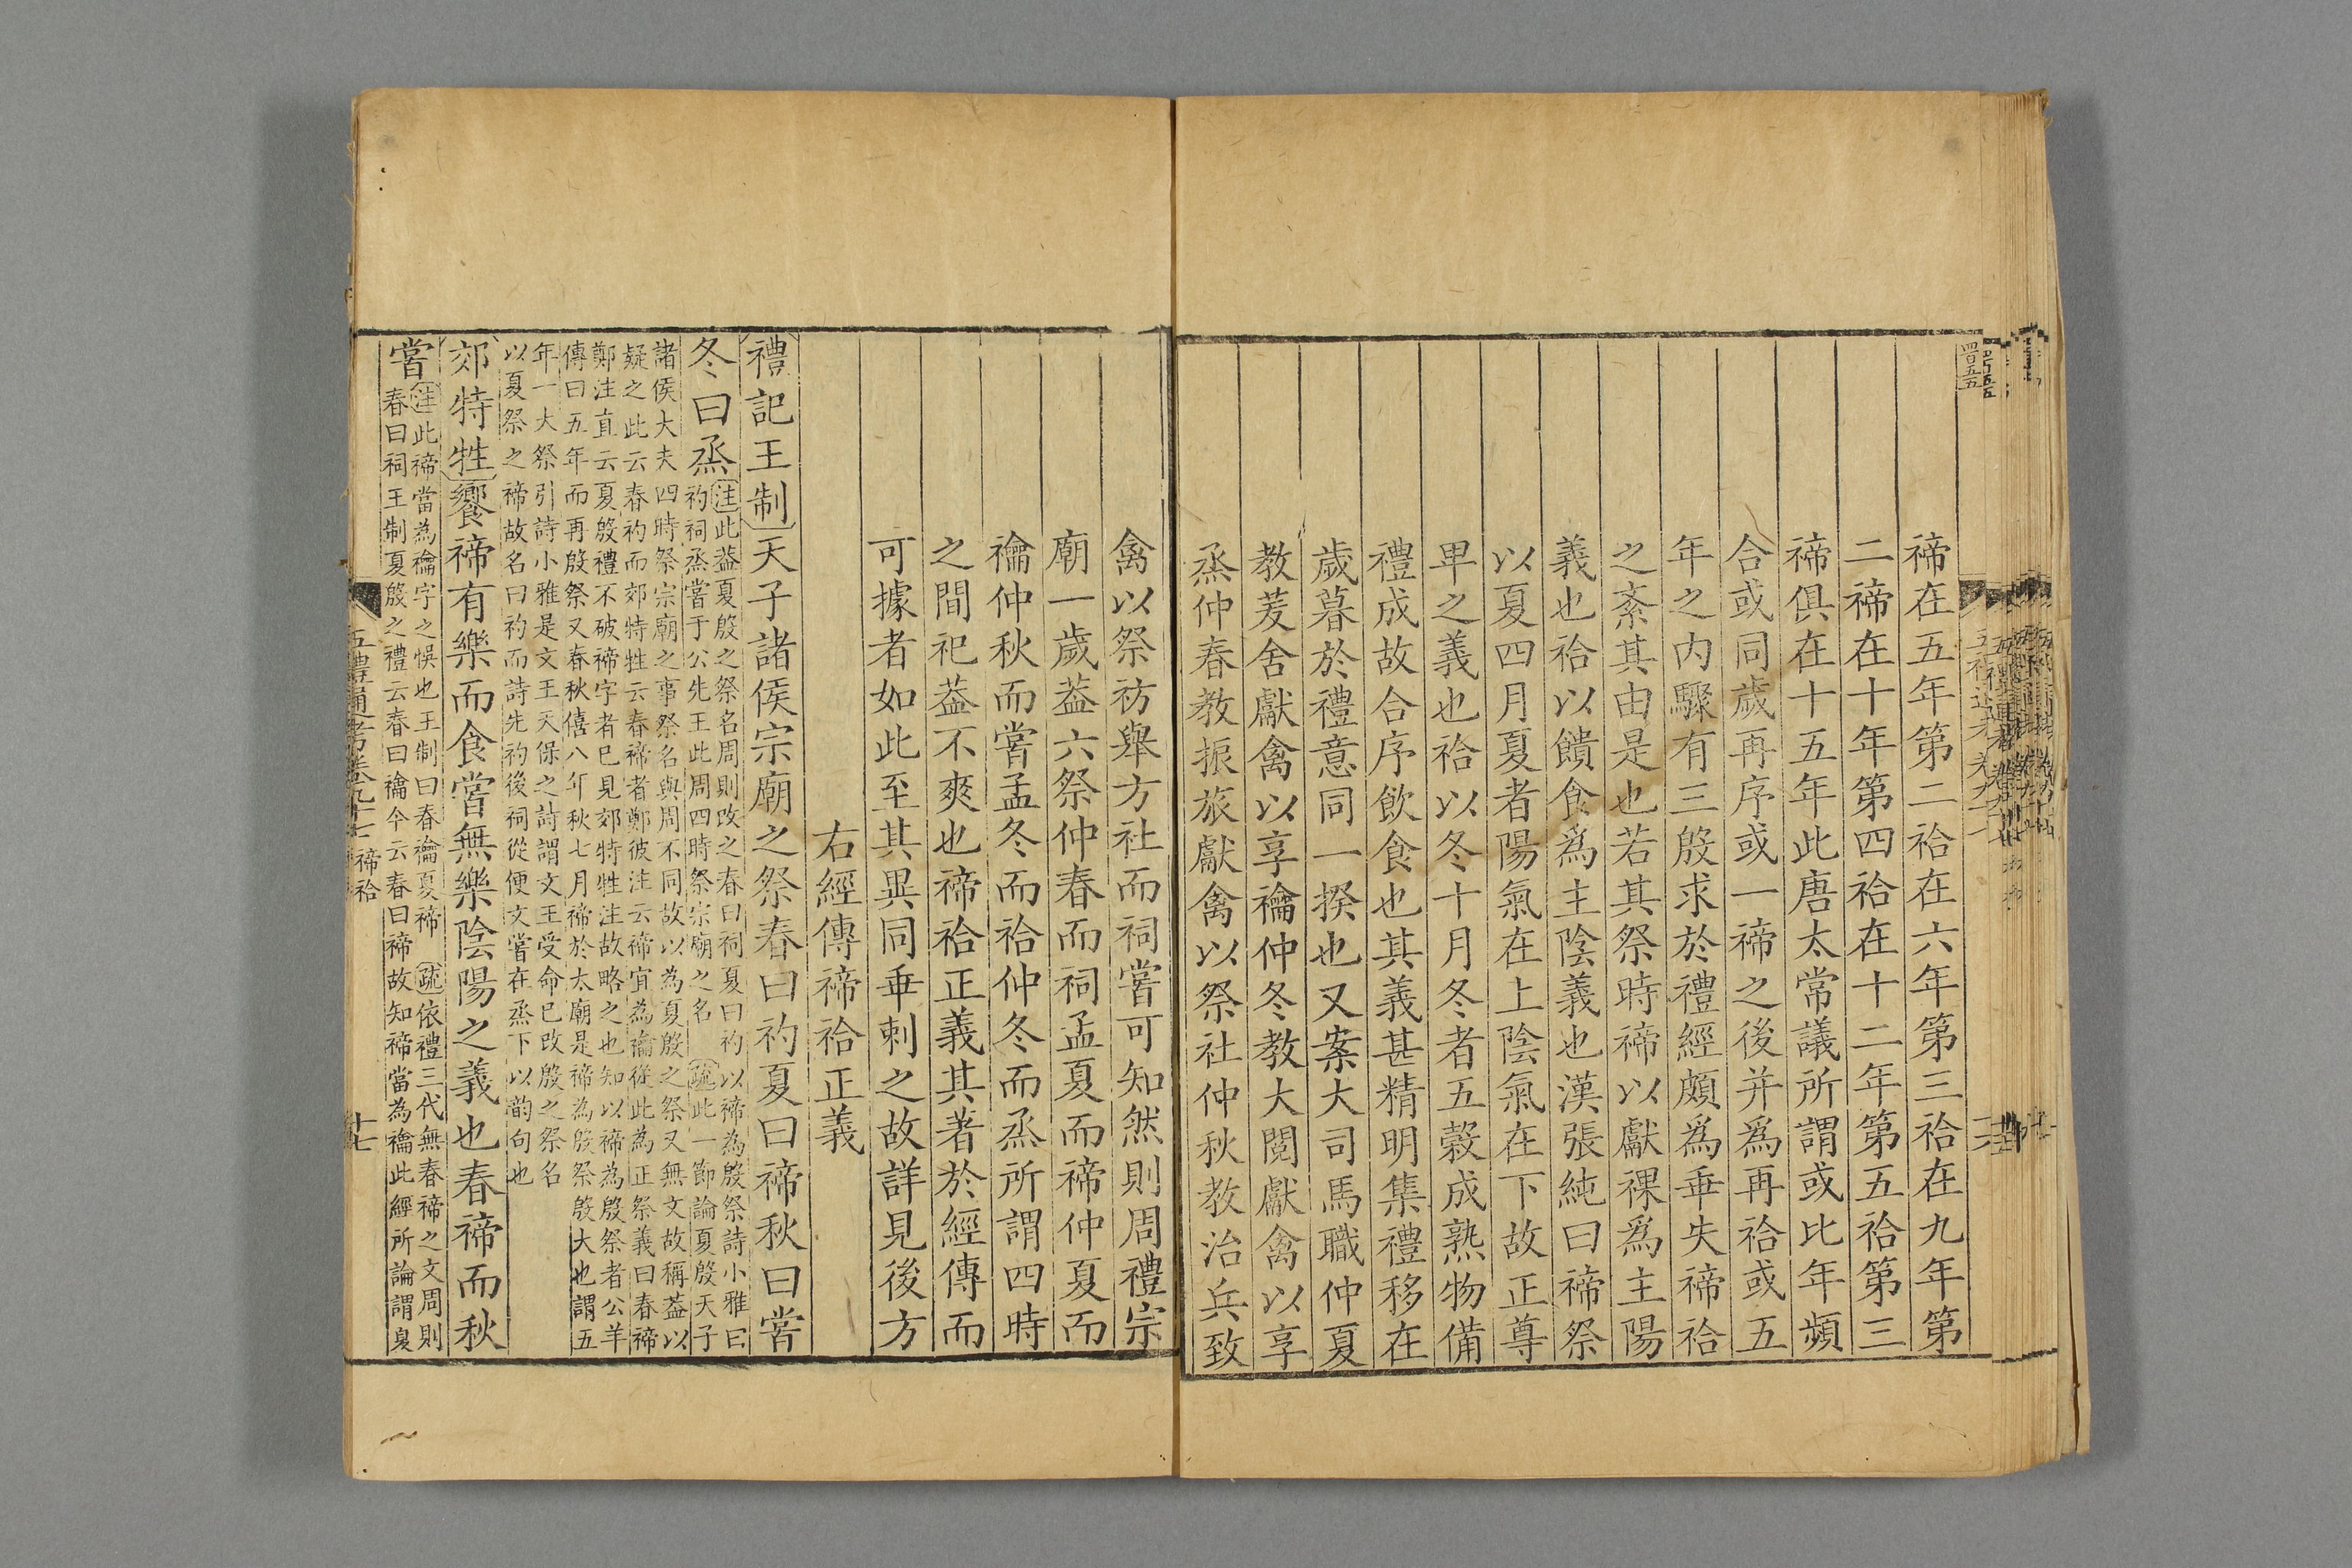 禘在五年第二祫在六年第三祫在九年第
二禘在十年第四祫在十二年第五祫第三
禘俱在十五年此唐太常議所謂或比年頻
合或同歲再序或一禘之後并爲再祫或五
年之内驟有三殷求於禮經頗爲乖失禘祫
之紊其由是也若其祭時禘以獻祼爲主陽
義也祫以饋食爲主陰義也漢張純曰禘祭
以夏四月夏者陽氣在上陰氣在下故正尊
卑之義也祫以冬十月冬者五穀成熟物備
禮成故合序飲食也其義甚精明集禮移在
歲暮於禮意同一揆也又案大司馬職仲夏
教茇舍獻禽以享禴仲冬教大閱獻禽以享
烝仲春教振旅獻禽以祭社仲秋教治兵致
禽以祭祊舉方社而祠嘗可知然則周禮宗
廟一歲葢六祭仲春而祠孟夏而禘仲夏而
禴仲秋而嘗孟冬而祫仲冬而烝所謂四時
之間祀葢不爽也禘祫正義其著於經傳而
可據者如此至其異同乖剌之故詳見後方
右經傳禘祫正義
禮記王制天子諸侯宗廟之祭春曰礿夏曰禘秋曰嘗
冬曰烝
注此葢夏殷之祭名周則改之春曰祠夏曰礿以禘為殷祭詩小雅曰
礿祠烝嘗于公先王此周四時祭宗廟之名疏此一節論夏殷天子
諸侯大夫四時祭宗廟之事祭名與周不同故以為夏殷之祭又無文故稱葢以
疑之此云春礿而郊特牲云春禘者鄭彼注云禘宜為禴從此為正祭義曰春禘
鄭注直云夏殷禮不破禘字者已見郊特牲注故略之也知以禘為殷祭者公羊
傳曰五年而再殷祭又春秋僖八年秋七月禘於太廟是禘為殷祭殷大也謂五
年一大祭引詩小雅是文王天保之詩謂文王受命已改殷之祭名
以夏祭之禘故名曰礿而詩先礿後祠從便文嘗在烝下以韵句也
郊特牲饗禘有樂而食嘗無樂陰陽之義也春禘而秋
嘗
注此禘當為禴字之悞也王制曰春禴夏禘疏依禮三代無春禘之文周則
春曰祠王制夏殷之禮云春曰禴今云春曰禘故知禘當為禴此經所論謂夏
五禮通考卷九十七 禘祫
十七